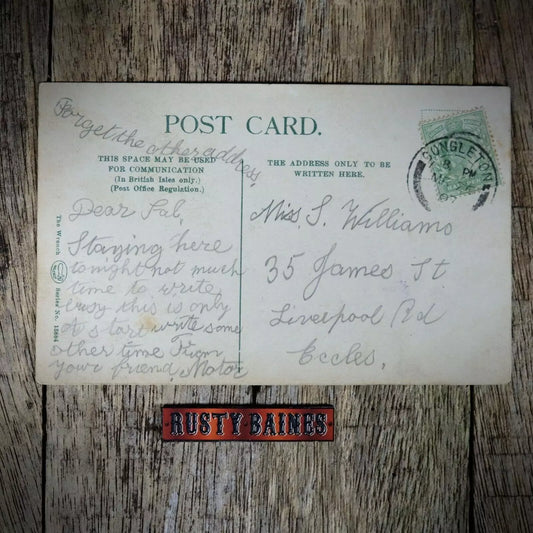 Forget the other address,
POST CARD.
THIS SPACE MAY BE USED
FOR COMMUNICATION
(In British Isles only.)
(Post Office Regulation.)
THE ADDRESS ONLY TO BE
WRITTEN HERE.
CONGLETON
8 PM
07
The Wrench Series No. 15804
Dear Sal,
Staying here
tonight not much
time to write
busy this is only
a store write some
other time From
your friend, Motor
Miss. S. Williams
35 James St
Liverpool Rd
Eccles,
RUSTY BAINES